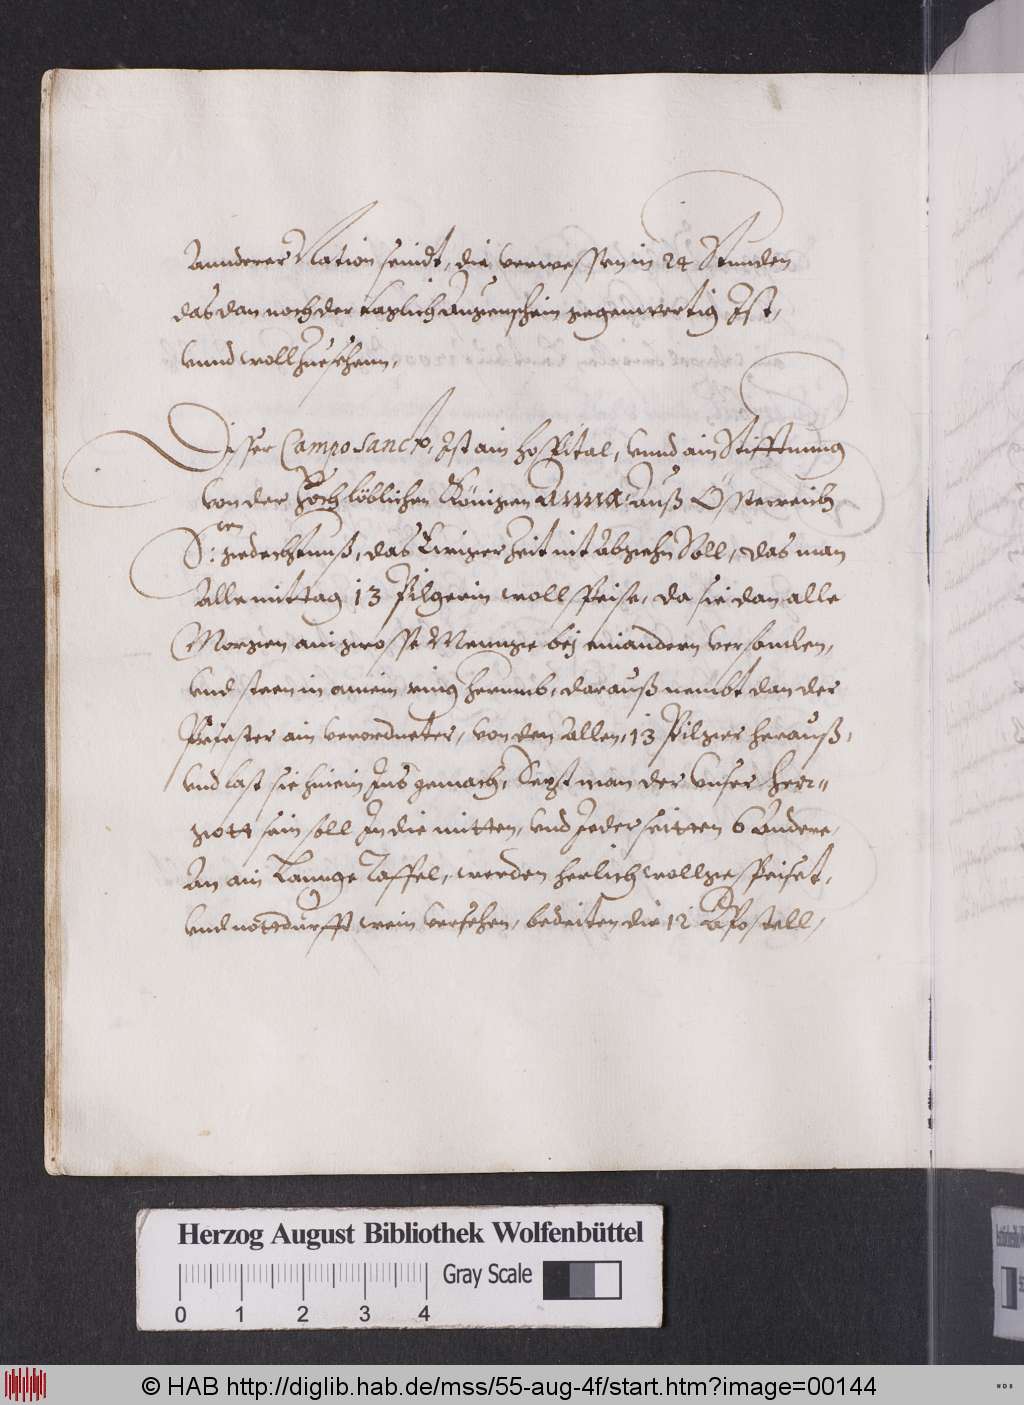 Annderer Nation seindt, die verwessen in 24 Stunden
das dan noch der täglich Augenschein gegenwertig Ist,
vnnd woll Zuesehenn,
Disser Campo Sancto, Ist ain Hospital, vnnd ain Stifftnung
von der Hoch löblichen Königen Anna Auß Österreich
S: ten gedechtnuß, das Ewiger Zeit nit Abgehn Soll, das man
Alle mittag 13 Pilgerin woll speise, da sie dan alle
Morgen ain grosse Mennge bej einandern versamlen,
vnd steen in ainem ring herumb, darauß nembt dan der
Priester ain verordneter, von den Allen, 13 Pilger herauß,
vnd last sie hinein Ins gemach, Sezt man der vnser Herr=
gott sein soll In die mitten, vnd Jeder seitten 6 Andere,
An ain Lannge Taffel, werden herlich woll gespeiset,
vnd nottdurfft wein versehen, bedeiten die 12 Apostell,
Herzog August Bibliothek Wolfenbüttel
Gray Scale
0 1 2 3 4
© HAB http://diglib.hab.de/mss/55-aug-4f/start.htm?image=00144